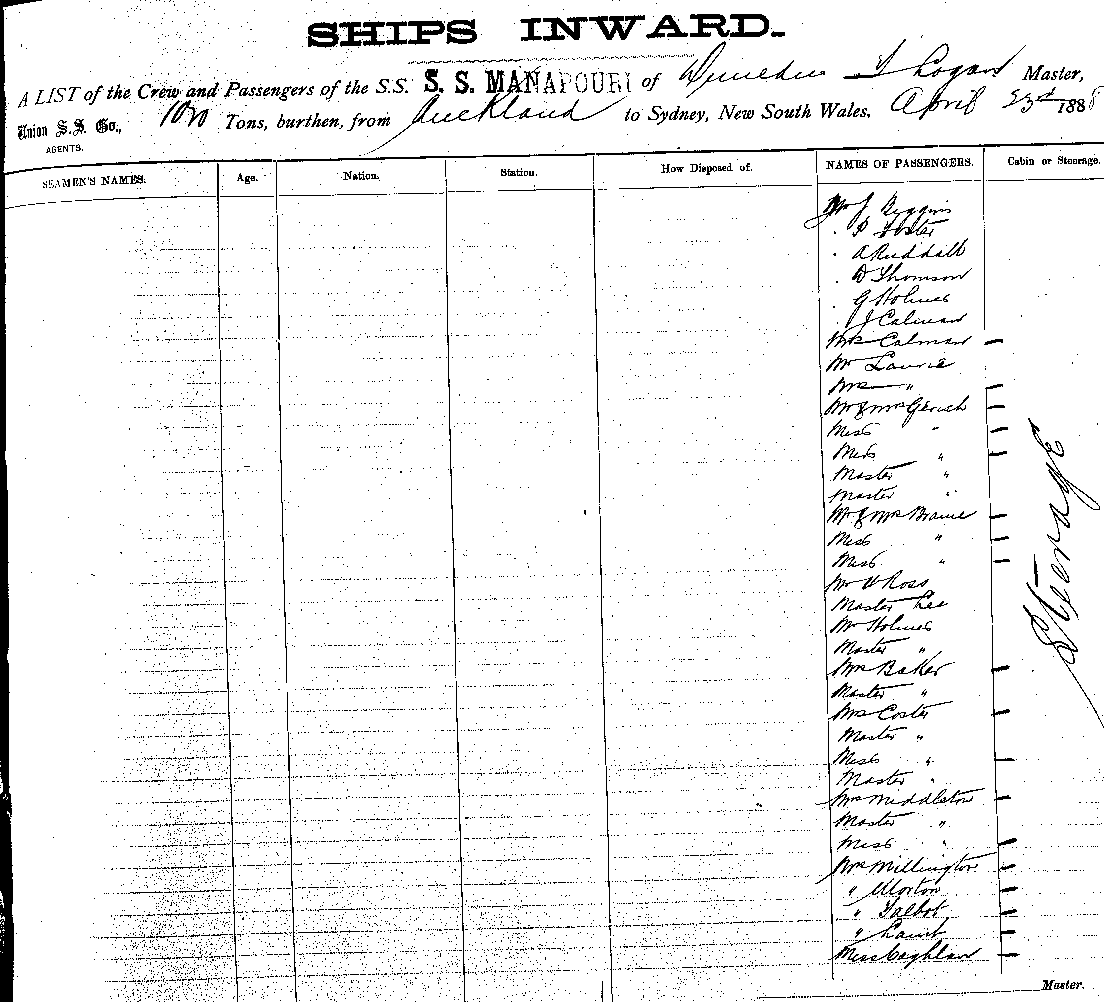 SHIPS INWARD.
A LIST of the Crew and Passengers of the S.S. S. S. MANAPOURI of Dunedin Logan Master,
Union S.S. Co., Tons, burthen, from Auckland to Sydney, New South Wales, April 23rd 1888
AGENTS.
SEAMEN'S NAMES. Age. Nation. Station. How Disposed of. NAMES OF PASSENGERS. Cabin or Steerage.
Mr J Biggins
. Foster
. A Ruddall
. D Thomson
. G Holmes
J Calman
Mrs Calman —
Mr Laurie
Mrs — " —
Mr & Mrs —
Miss " —
Miss " —
Master "
Master "
Mr & Mrs —
Miss " —
Miss " —
Mr Ross
Master Lee
Mr Holmes
Master "
Mrs Baker —
Master "
Mrs Coster —
Master "
Miss " —
Master "
Mrs Middleton —
Master "
Miss " —
Mrs Millington —
" Morton —
" Talbot —
" —
Miss Coghlan —
Steerage
Master.